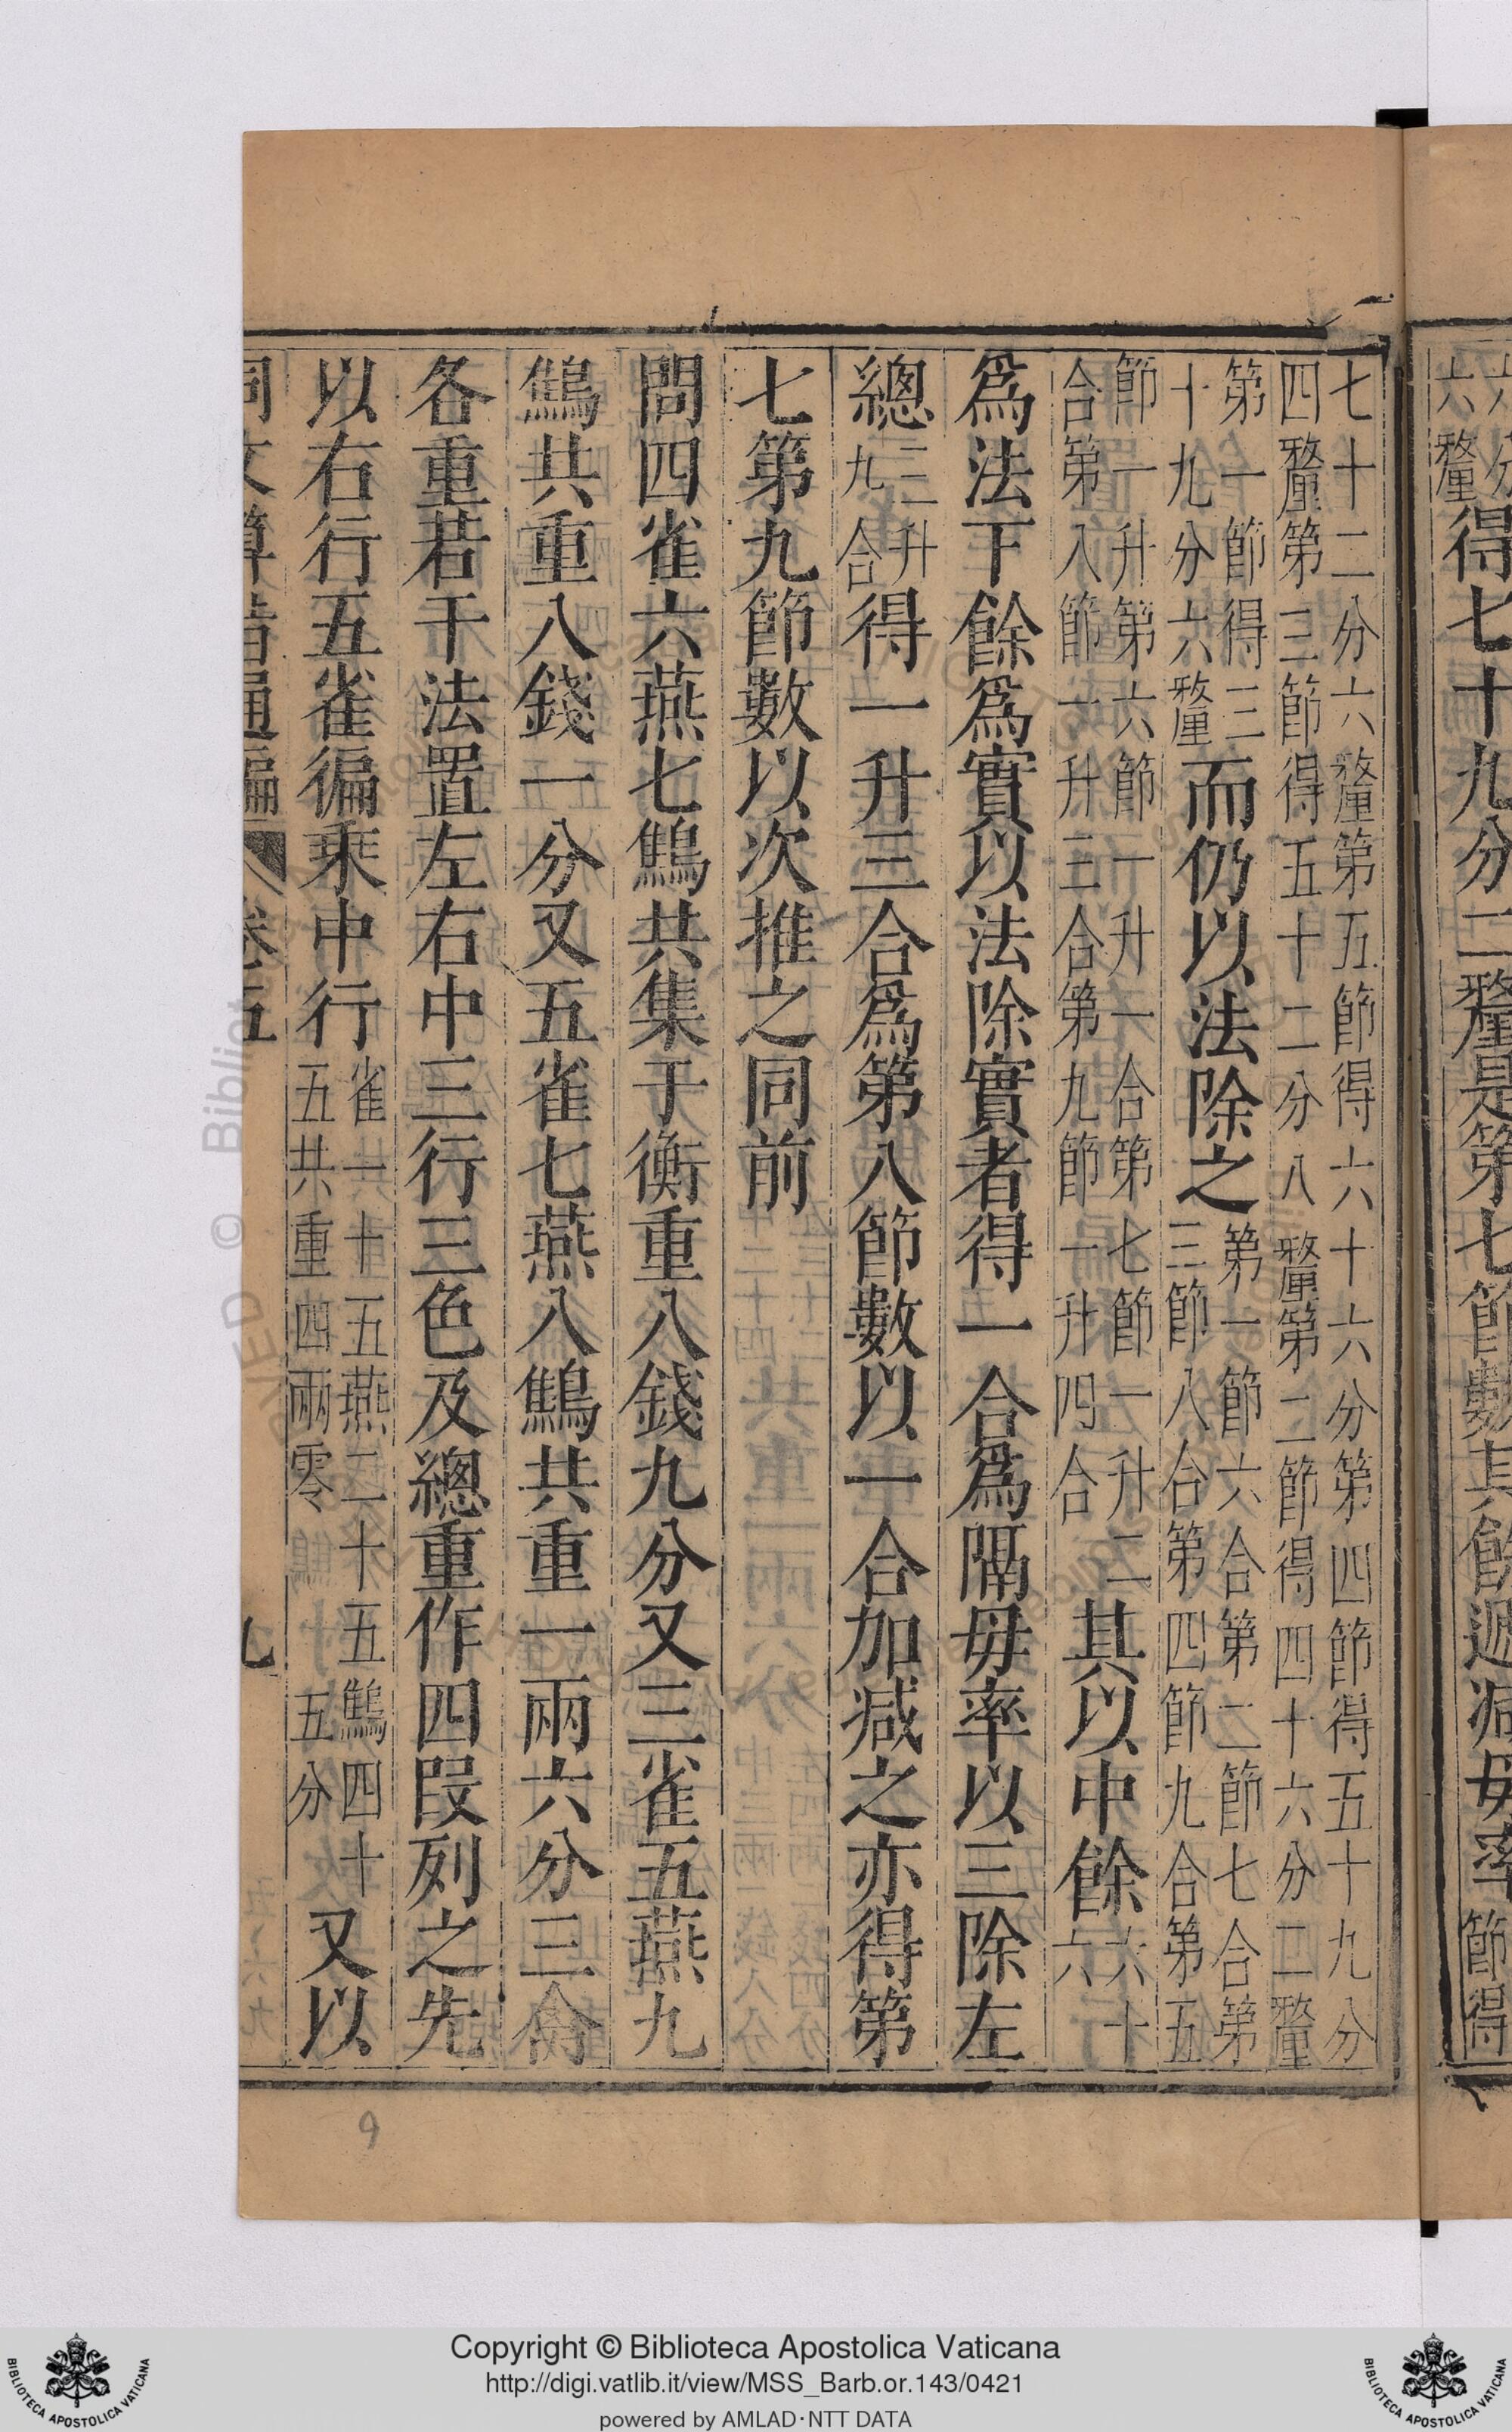 得七十九分二釐是第七節數其餘遞減毋率
七十二分六釐第五節得六十六分第四節得五十九分
四釐第三節得五十二分八釐第二節得四十六分二釐
第一節得三
十九分六釐
而仍以法除之
第一節六合第二節七合第
三節八合第四節九合第五
節一升第六節一升一合第七節一升二
合第八節一升三合第九節一升四合
其以中餘
六十
六
爲法下餘爲實以法除實者得一合爲隔毋率以三除左
總
三升
九合
得一升三合爲第八節數以一合加減之亦得第
七第九節數以次推之同前
問四雀六燕七鷦共集于衡重八錢九分又三雀五燕九
鷦共重八錢一分又五雀七燕八鷦共重一兩六分三禽
各重若干法置左右中三行三色及總重作四段列之先
以右行五雀徧乘中行
雀一十五燕二十五鷦四十
五共重四兩零五分
又以
同文算指通編
卷五
九
9
Copyright © Biblioteca Apostolica Vaticana
http://digi.vatlib.it/view/MSS_Barb.or.143/0421
powered by AMLAD·NTT DATA
BIBLIOTECA APOSTOLICA VATICANA
BIBLIOTECA APOSTOLICA VATICANA